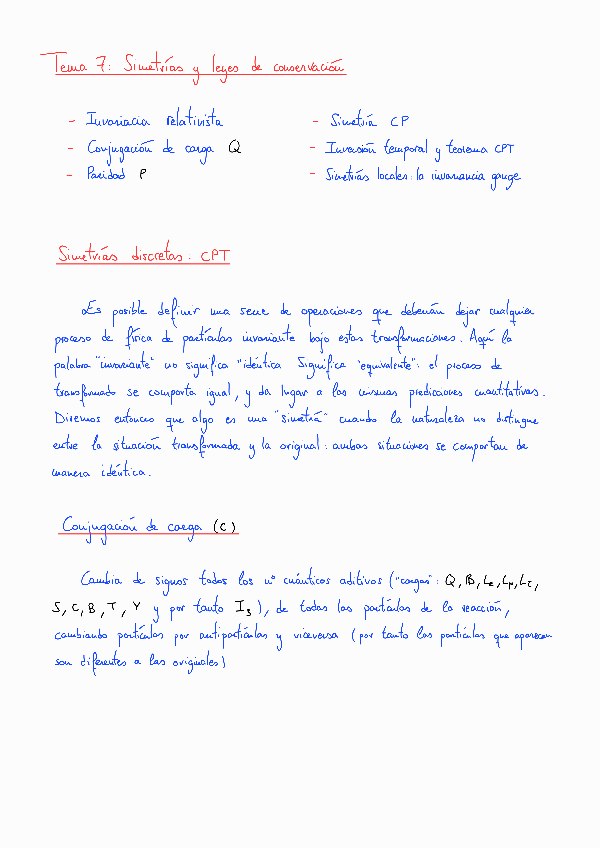 Tema 7: Simetrías y leyes de conservación
- Invariacia relativista
- Conjugación de carga Q
- Paridad P
- Simetría CP
- Inversión temporal y teorema CPT
- Simetrías locales: la invariancia gauge
Simetrías discretas. CPT
Es posible definir una serie de operaciones que deberían dejar cualquier
proceso de física de partículas invariante bajo estas transformaciones. Aquí la
palabra "invariante" no significa "idéntica Significa "equivalente": el proceso de
transformado se comporta igual, y da lugar a las mismas predicciones cuantitativas.
Diremos entonces que algo es una "simetría" cuando la naturaleza no distingue
entre la situación transformada y la original: ambas situaciones se comportan de
manera idéntica.
Conjugación de carga (C)
Cambia de signos todos los nº cuánticos aditivos ("cargas": Q, B, Le, Lμ, Lτ,
S, C, B, T, Y y por tanto I3), de todas las partículas de la reacción,
cambiando partículas por antipartículas y viceversa (por tanto las partículas que aparecen
son diferentes a las originales)